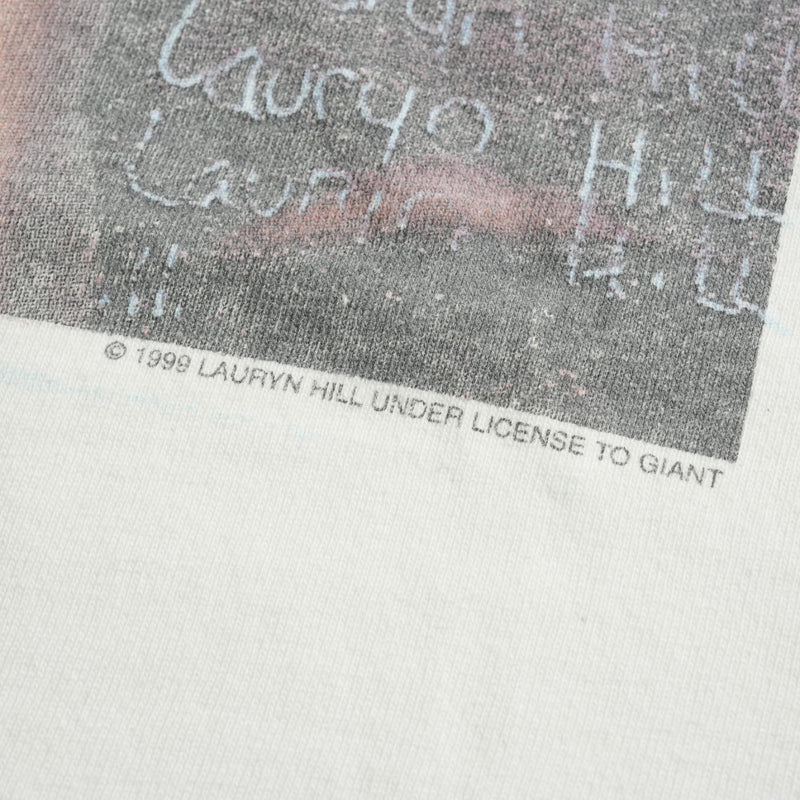 Hill
Lauryn Hill
Laurin Hill
© 1999 LAURYN HILL UNDER LICENSE TO GIANT